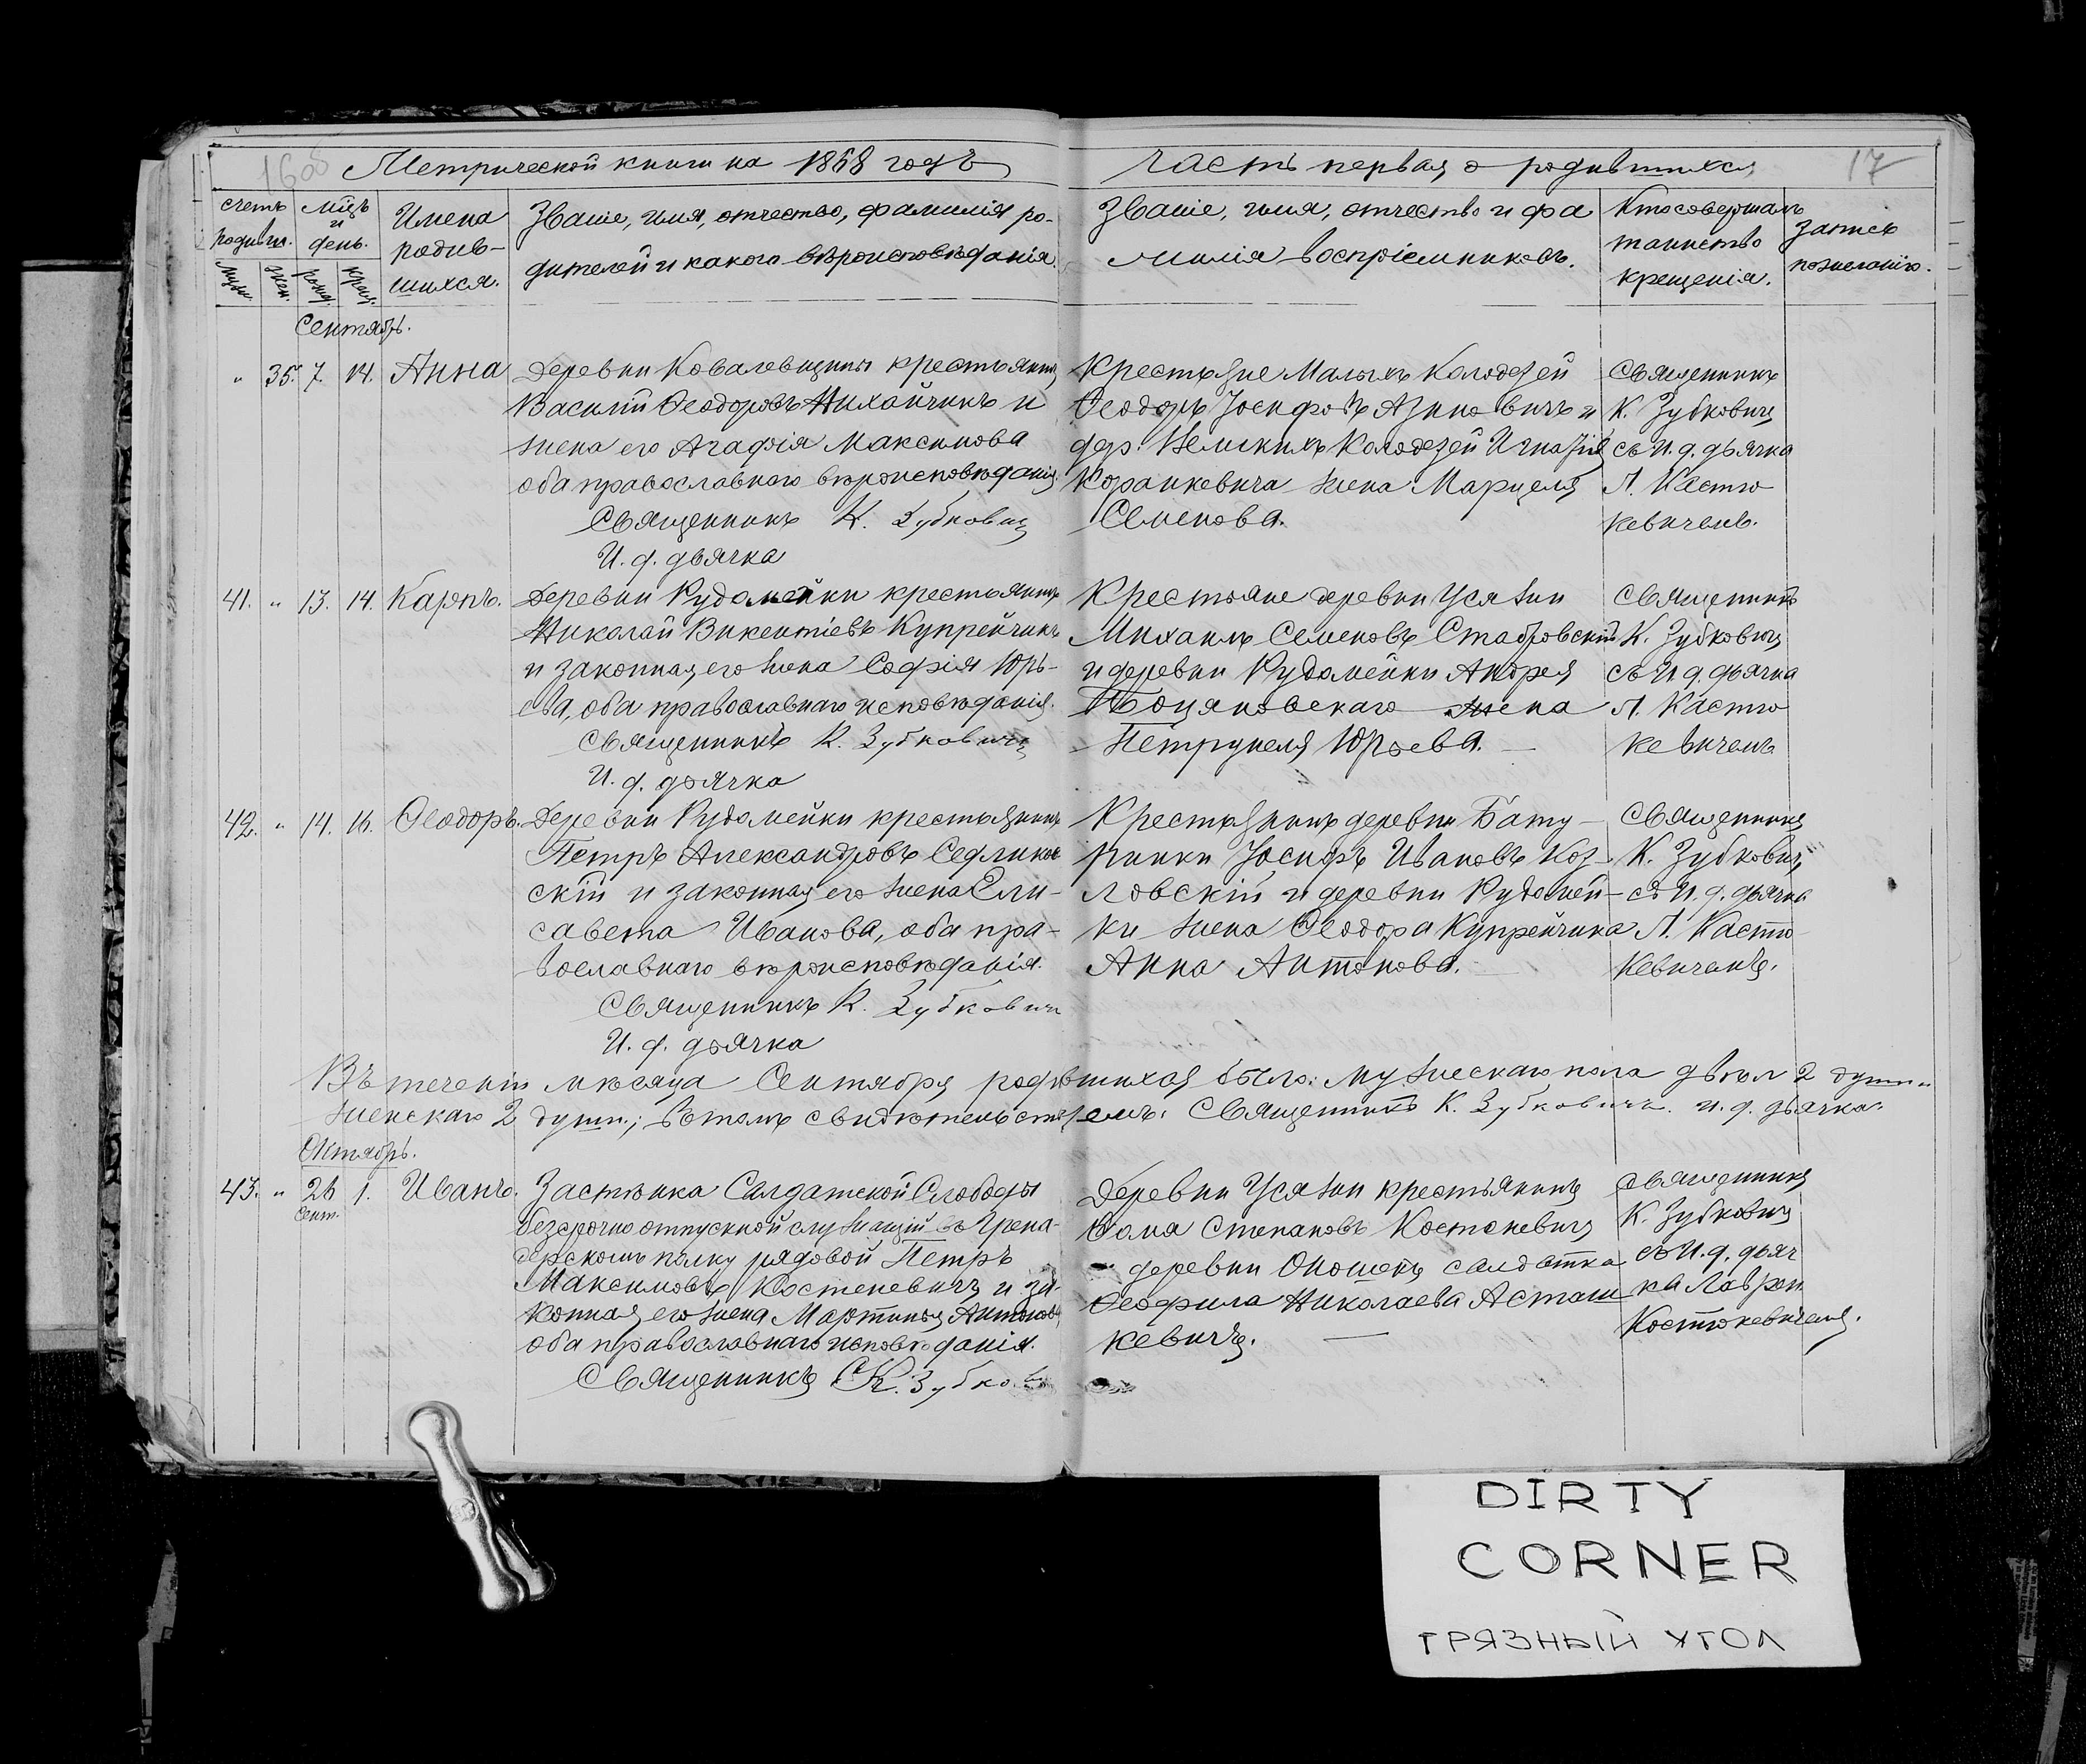 16об Метрической книги на 1868 годъ
часть первая о родившихся 17
счетъ родивш. мцъ и день. Имена родив-шихся.
Званіе, имя, отчество, фамилія ро-
дителей и какого вѣроисповѣданія.
Званіе, имя, отчество и фа
милія воспріемниковъ.
Кто совершалъ
таинство
крещенія.
Запись
по желанію.
муж. жен. рожд. крещ.
Сентябрь.
" 35. 7. 14. Анна
Деревни Ковалевщины крестьянинъ
Василій Ѳеодоровъ Михайчикъ и
жена его Агафія Максимова
оба православнаго вѣроисповѣданія.
Священникъ К. Зубковичъ
И. д. дьячка
Крестьяне Малыхъ Колодезей
Ѳеодоръ Іосифовъ Азиновичъ и
дер. Великихъ Колодезей Игнатія
Коранкевича жена Марцеля
Семенова.
Священникъ
К. Зубковичъ
съ И. д. дьячка
Л. Кастю
кевичемъ.
41. " 13. 14. Карпъ.
Деревни Рудомейки крестьянинъ
Николай Викентіевъ Купрейчикъ
и законная его жена Софія Юрь-
ева, оба православнаго исповѣданія.
Священникъ К. Зубковичъ
И. д. дьячка
Крестьяне деревни Усяжи
Михаилъ Семеновъ Стабровскій
и деревни Рудомейки Андрея
Боцяновскаго жена
Петрунеля Юрьева.
Священникъ
К. Зубковичъ
съ И. д. дьячка
Л. Кастю
кевичемъ
42. " 14. 16. Ѳеодоръ.
Деревни Рудомейки крестьянинъ
Петръ Александровъ Седликов
скій и законная его жена Ели-
савета Иванова, оба пра-
вославнаго вѣроисповѣданія.
Священникъ К. Зубковичъ
И. д. дьячка
Крестьянинъ деревни Бату-
ринки Іосифъ Ивановъ Коз-
ловскій и деревни Рудомей-
ки жена Ѳеодора Купрейчика
Анна Антонова.
Священникъ
К. Зубковичъ
съ И. д. дьячка
Л. Кастю
кевичемъ.
Въ теченіи мѣсяца Сентября родившихся было: мужескаго пола 2 души
женскаго 2 души; въ томъ свидѣтельствуемъ: Священникъ К. Зубковичъ. и. д. дьячка.
Октябрь.
43. " 26 Сент. 1. Иванъ.
Застѣнка Салдатской Слободы
безсрочно отпускной служащій въ Грена-
дерскомъ полку рядовой Петръ
Максимовъ Костеневичъ и за-
конная его жена Мартина Антонова
оба православнаго исповѣданія.
Священникъ К. Зубков
Деревни Усяжи крестьянинъ
Ѳома Степановъ Костеневичъ
деревни салдатка
Ѳеофила Николаева Асташ
кевичъ.
Священникъ
К. Зубковичъ
съ И. д. дьяч
ка Лаврен.
Костюкевичемъ.
DIRTY
CORNER
ГРЯЗНЫЙ УГОЛ